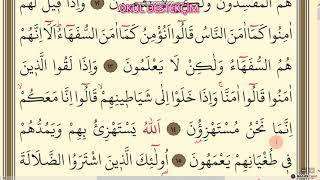 OKUL DESTEKÇİM
هُمُ الْمُفْسِدُونَ وَلٰكِنْ لَا يَشْعُرُونَ ﴿١٢﴾ وَاِذَا قٖيلَ لَهُمْ
اٰمِنُوا كَمَٓا اٰمَنَ النَّاسُ قَالُٓوا اَنُؤْمِنُ كَمَٓا اٰمَنَ السُّفَهَٓاءُ اَلَٓا اِنَّهُمْ
هُمُ السُّفَهَٓاءُ وَلٰكِنْ لَا يَعْلَمُونَ ﴿١٣﴾ وَاِذَا لَقُوا الَّذٖينَ
اٰمَنُوا قَالُٓوا اٰمَنَّا وَاِذَا خَلَوْا اِلٰى شَيَاطٖينِهِمْ قَالُٓوا اِنَّا مَعَكُمْ
اِنَّمَا نَحْنُ مُسْتَهْزِؤُنَ ﴿١٤﴾ اَللّٰهُ يَسْتَهْزِئُ بِهِمْ وَيَمُدُّهُمْ
فٖى طُغْيَانِهِمْ يَعْمَهُونَ ﴿١٥﴾ اُولٰٓئِكَ الَّذٖينَ اشْتَرَوُا الضَّلَالَةَ